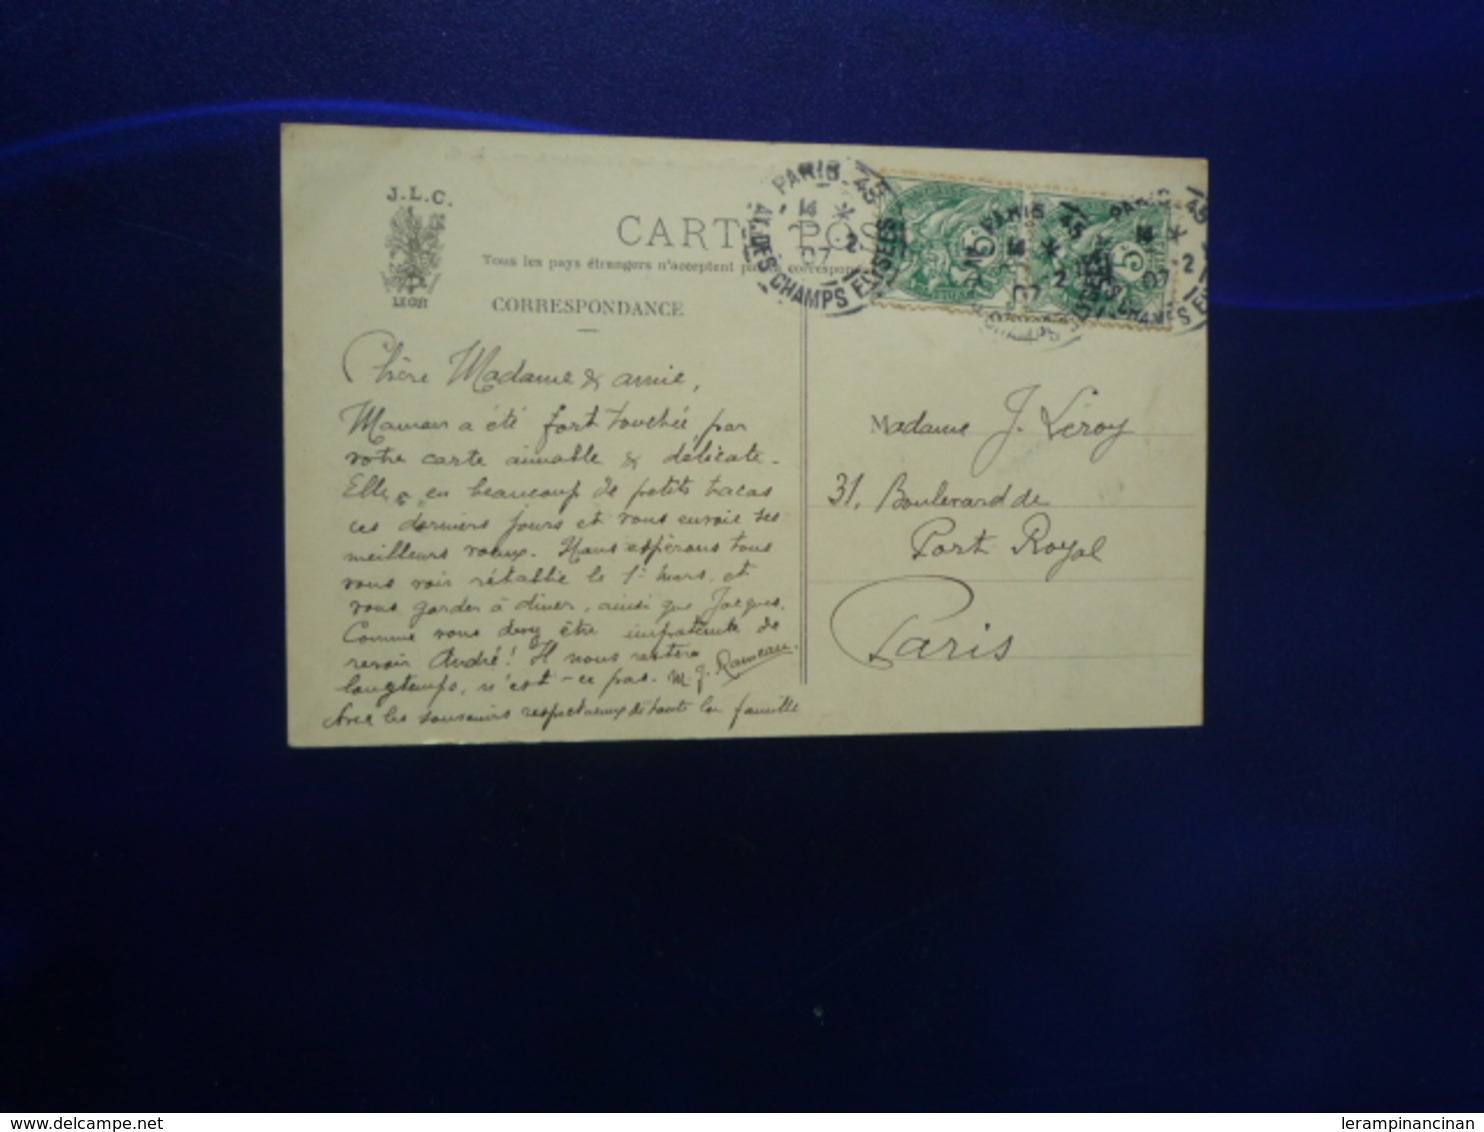 J.L.C.
LE GUI
CARTE POS
Tous les pays étrangers n'acceptent pas correspon
CORRESPONDANCE
PARIS.45
AV. DES CHAMPS ELYSEES
14 * 2 07
5
5
Chère Madame & amie,
Maman a été fort touchée, par
votre carte aimable & délicate.
Elle a eu beaucoup de petits tracas
ces derniers jours et vous envoie ses
meilleurs vœux. Nous espérons tous
vous voir rétablie le 1er mars, et
vous garder à dîner, ainsi que Jacques.
Comme vous devez être impatiente de
revoir André! Il nous restera
longtemps, n'est-ce pas. M. J. Rameau.
Avec les souvenirs respectueux de toute la famille
Madame J. Leroy
31, Boulevard de
Port Royal
Paris
delcampe.net
lerampinancinan